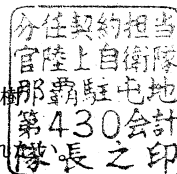 分任契約担当
官陸上自衛隊
那覇駐屯地
第430会計
隊長之印
樹